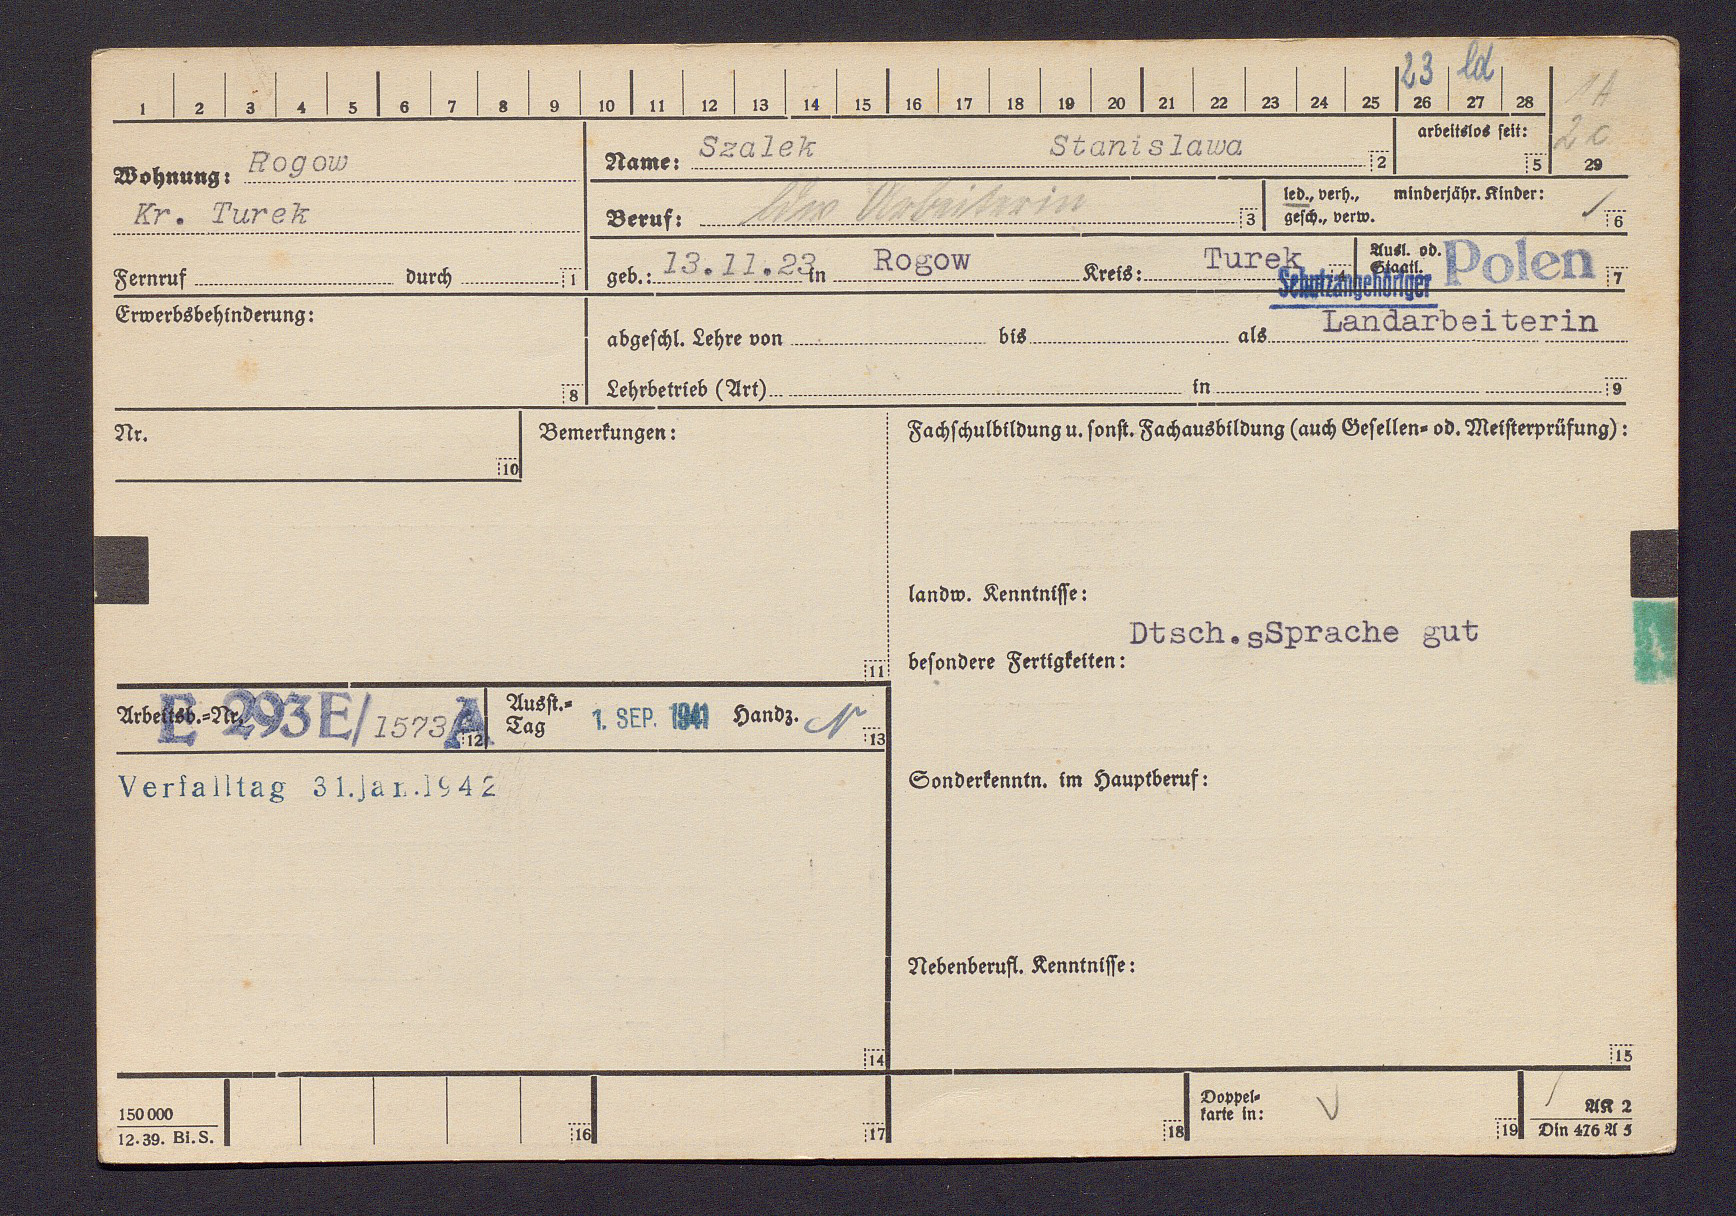 23 ld
1 2 3 4 5 6 7 8 9 10 11 12 13 14 15 16 17 18 19 20 21 22 23 24 25 26 27 28
1A
2c
29
Wohnung: Rogow
Kr. Turek
Fernruf durch 1
Name: Szalek Stanislawa 2
arbeitslos seit: 5
Beruf: ldw Arbeiterin 3
led., verh., minderjähr. Kinder:
gesch., verw. 6
geb.: 13.11.23 in Rogow Kreis: Turek 4
Ausl. od.
Staatl. Polen 7
Schutzangehöriger
Erwerbsbehinderung:
8
abgeschl. Lehre von bis als Landarbeiterin
Lehrbetrieb (Art) in 9
Nr.
10
Bemerkungen:
11
Fachschulbildung u. sonst. Fachausbildung (auch Gesellen= od. Meisterprüfung):
landw. Kenntnisse:
Dtsch.sSprache gut
besondere Fertigkeiten:
Arbeitsb.=Nr. E 293E/1573 A 12
Ausst.=
Tag 1. SEP. 1941 Handz. 13
Verfalltag 31.Jan.1942
14
Sonderkenntn. im Hauptberuf:
Nebenberufl. Kenntnisse:
15
150 000
12. 39. Bi. S.
16
17
18
Doppel=
karte in:
19
AK 2
Din 476 A 5